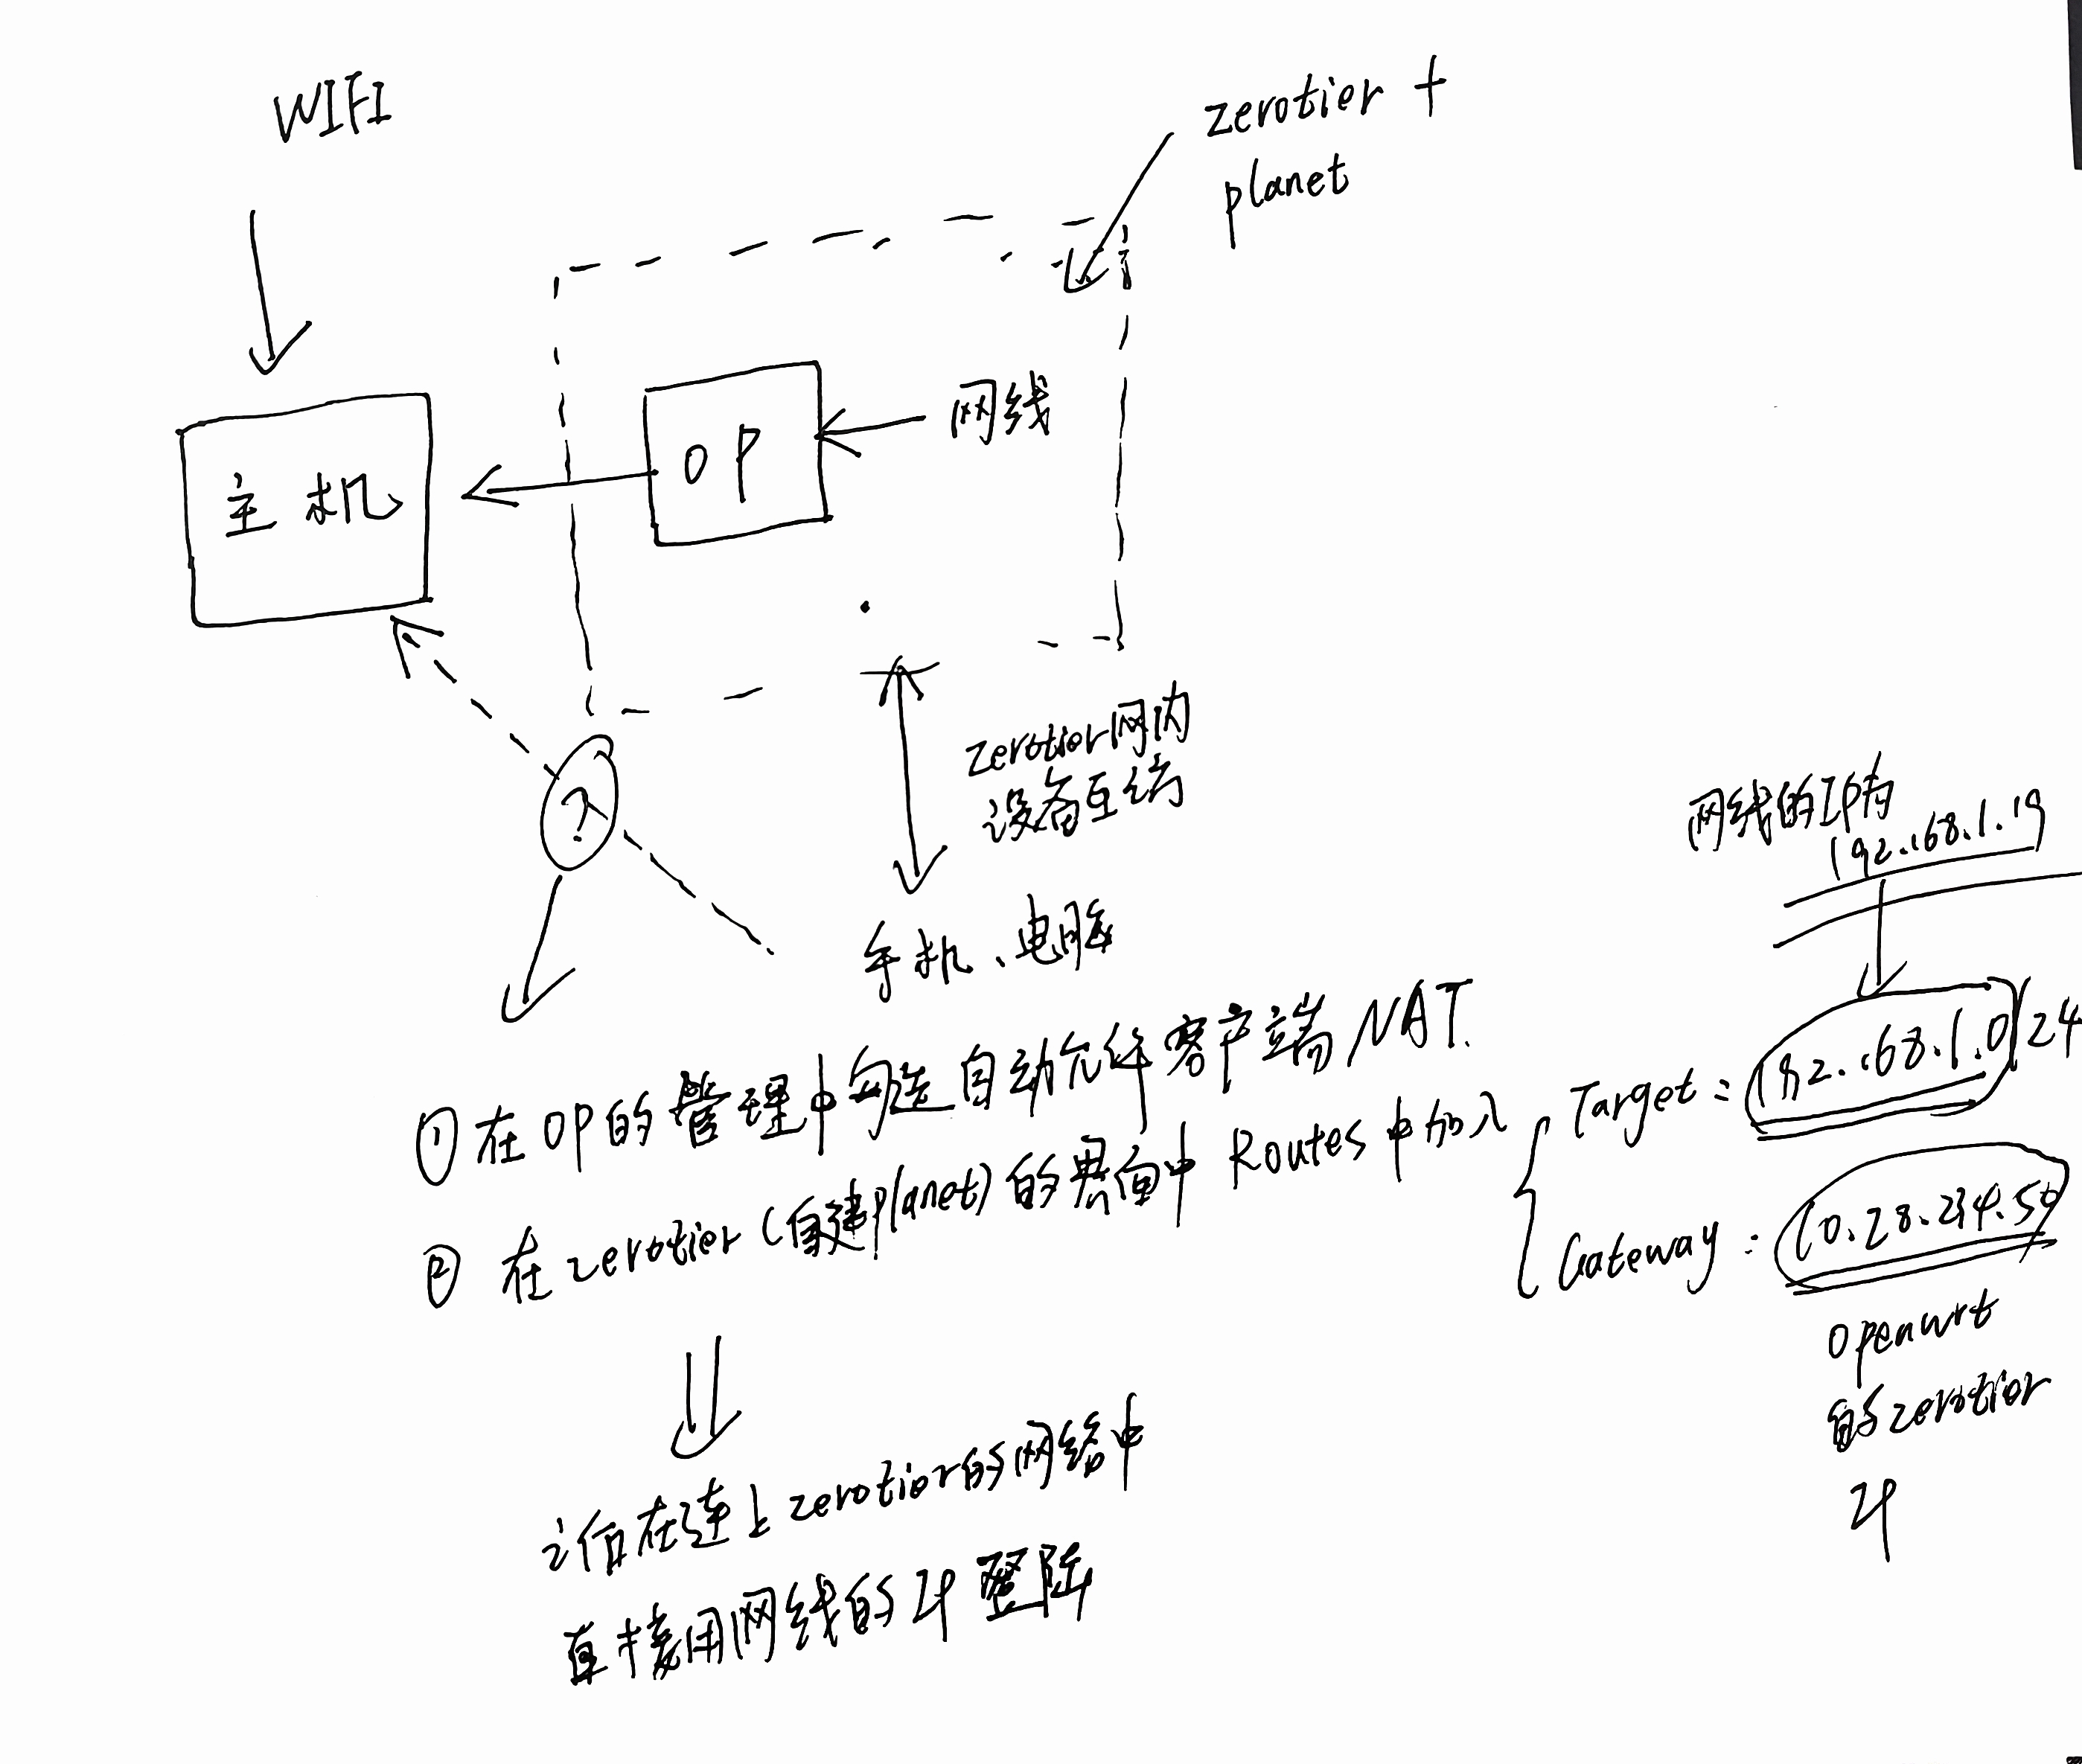 WIFI
zerotier +
planet
网线
OP
主机
?
zerotier网内
设备互访
手机、电脑
网线的IP为
192.168.1.19
① 在OP的管理中勾选自动允许客户端NAT.
② 在zerotier(自建planet)的界面中 Routes中加入
Target: 192.168.1.0/24
Gateway: 10.28.234.59
openwrt
的zerotier
IP
在连上zerotier的网络中
直接用网线的IP登陆